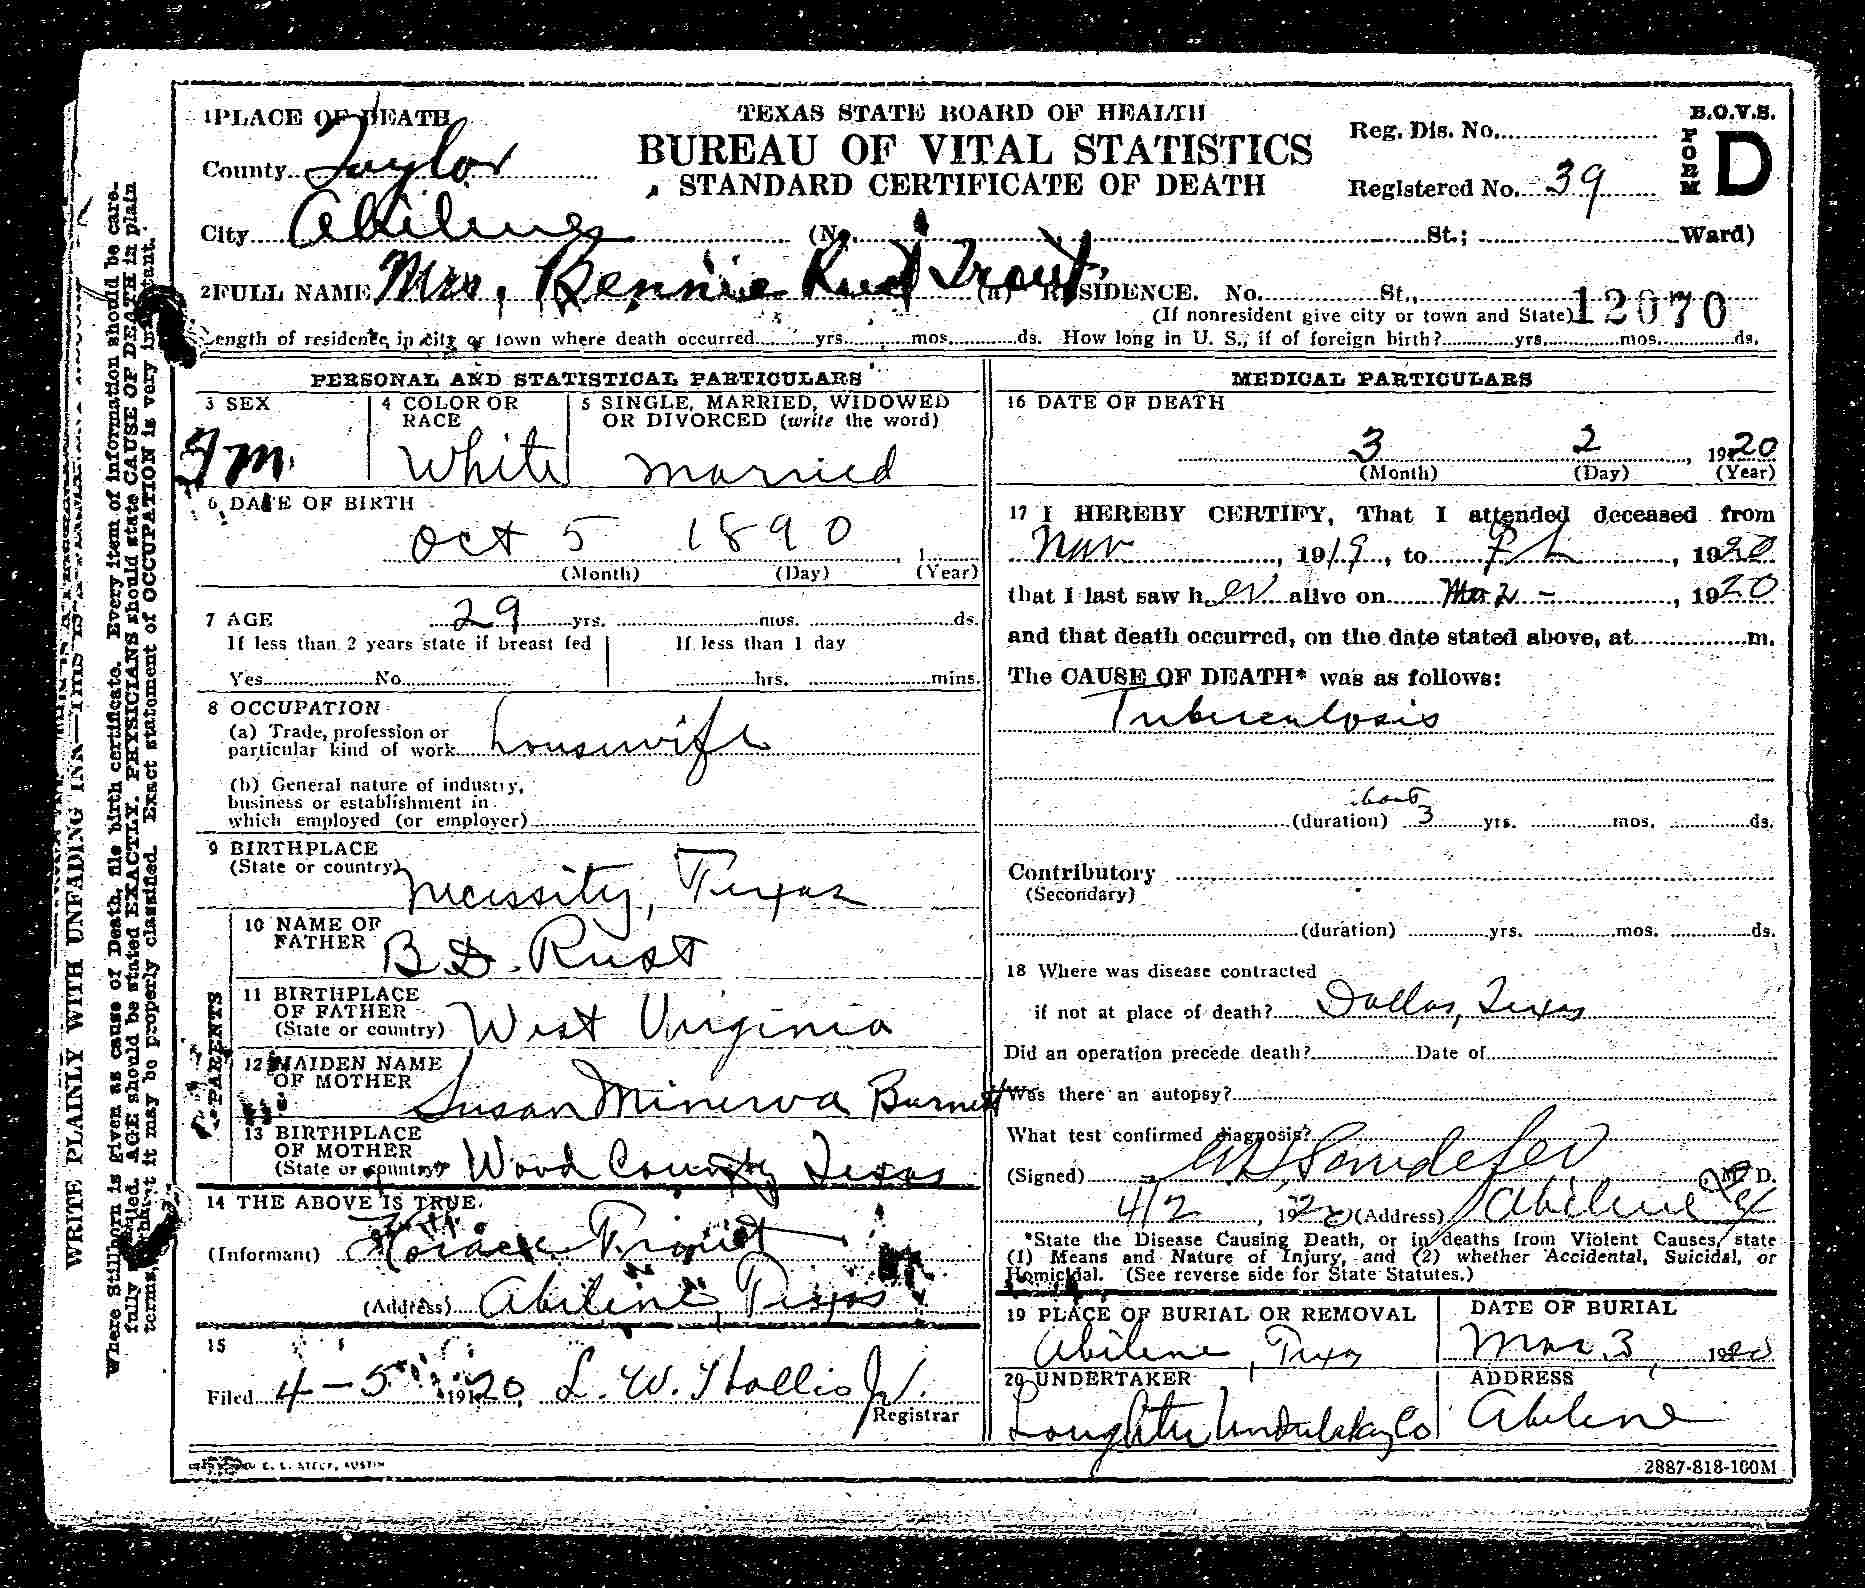 1 PLACE OF DEATH
TEXAS STATE BOARD OF HEALTH
BUREAU OF VITAL STATISTICS
STANDARD CERTIFICATE OF DEATH
B.O.V.S.
FORM D
Reg. Dis. No.
Registered No. 39
County Taylor
City Abilene (No. St.; Ward)
2 FULL NAME Mrs. Bennie Rust Trout (a) RESIDENCE. No. St.,
(If nonresident give city or town and State) 12070
Length of residence in city or town where death occurred yrs. mos. ds. How long in U. S., if of foreign birth? yrs. mos. ds.
PERSONAL AND STATISTICAL PARTICULARS
3 SEX
4 COLOR OR RACE
5 SINGLE, MARRIED, WIDOWED OR DIVORCED (write the word)
Fm. White married
6 DATE OF BIRTH
Oct 5 1890, 1
(Month) (Day) (Year)
7 AGE 29 yrs. mos. ds.
If less than 2 years state if breast fed If less than 1 day
Yes No hrs. mins.
8 OCCUPATION
(a) Trade, profession or
particular kind of work housewife
(b) General nature of industry,
business or establishment in
which employed (or employer)
9 BIRTHPLACE
(State or country) Necessity, Texas
PARENTS
10 NAME OF FATHER B D. Rust
11 BIRTHPLACE OF FATHER
(State or country) West Virginia
12 MAIDEN NAME OF MOTHER Susan Minerva Burnett
13 BIRTHPLACE OF MOTHER
(State or country) Wood County Texas
14 THE ABOVE IS TRUE.
(Informant) Horace Trout
(Address) Abilene, Texas
15
Filed 4-5 1920, L. W. Hollis Jr.
Registrar
MEDICAL PARTICULARS
16 DATE OF DEATH
3 2, 1920
(Month) (Day) (Year)
17 I HEREBY CERTIFY, That I attended deceased from
Nov, 1919, to, 1920
that I last saw her alive on Mar 2 -, 1920
and that death occurred, on the date stated above, at m.
The CAUSE OF DEATH* was as follows:
Tuberculosis
about
(duration) 3 yrs. mos. ds.
Contributory
(Secondary)
(duration) yrs. mos. ds.
18 Where was disease contracted
if not at place of death? Dallas, Texas
Did an operation precede death? Date of
Was there an autopsy?
What test confirmed diagnosis?
(Signed) Sandefer M. D.
4/2, 1920 (Address) Abilene Tex
*State the Disease Causing Death, or in deaths from Violent Causes, state
(1) Means and Nature of Injury, and (2) whether Accidental, Suicidal, or
Homicidal. (See reverse side for State Statutes.)
19 PLACE OF BURIAL OR REMOVAL DATE OF BURIAL
Abilene, Texas Mar. 3, 1920
20 UNDERTAKER ADDRESS
Laughter Undertaking Co Abilene
E. L. STECK, AUSTIN
2887-818-100M
WRITE PLAINLY WITH UNFADING INK—THIS IS A PERMANENT RECORD
Where Stillborn is given as cause of Death, file birth certificate. Every item of information should be care-
fully supplied. AGE should be stated EXACTLY. PHYSICIANS should state CAUSE OF DEATH in plain
terms, so that it may be properly classified. Exact statement of OCCUPATION is very important.